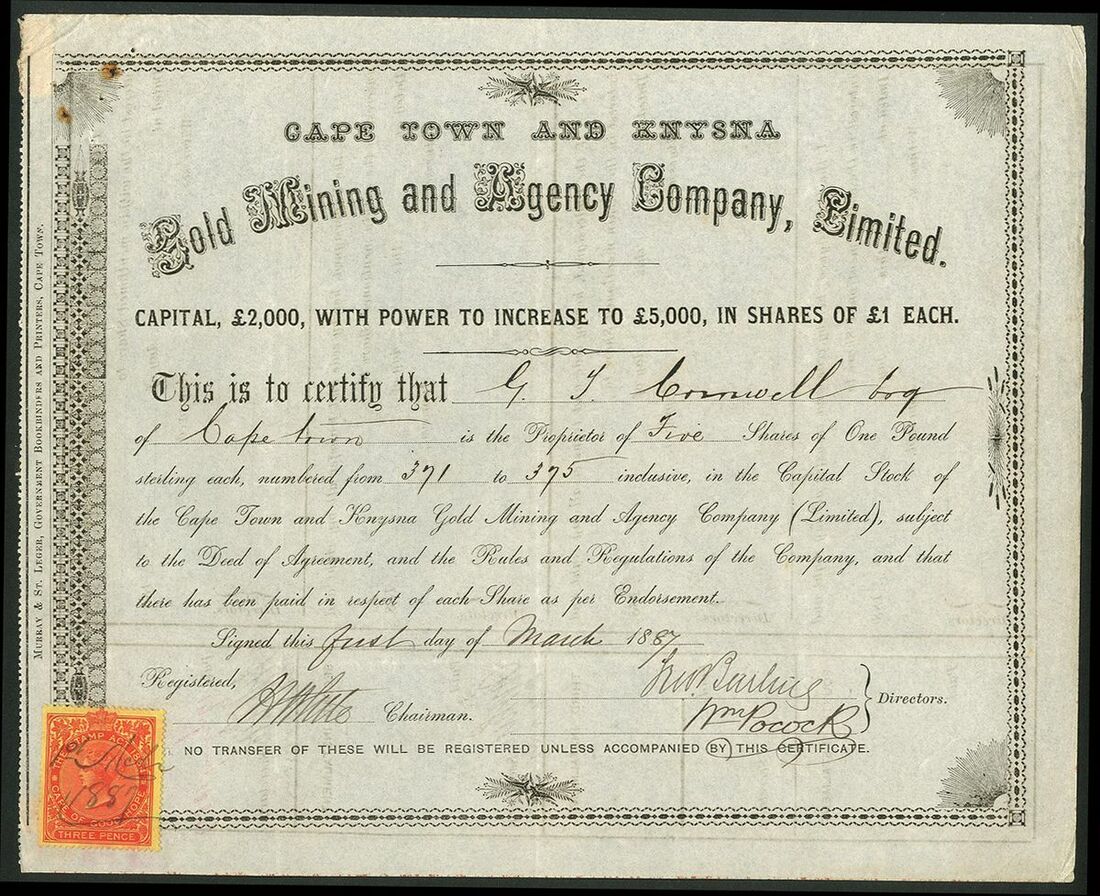 CAPE TOWN AND KNYSNA
Gold Mining and Agency Company, Limited.
CAPITAL, £2,000, WITH POWER TO INCREASE TO £5,000, IN SHARES OF £1 EACH.
This is to certify that G. T. Cornwell Esq
of Cape town is the Proprietor of Five Shares of One Pound
sterling each, numbered from 371 to 375 inclusive, in the Capital Stock of
the Cape Town and Knysna Gold Mining and Agency Company (Limited), subject
to the Deed of Agreement, and the Rules and Regulations of the Company, and that
there has been paid in respect of each Share as per Endorsement.
Signed this first day of March 1887
Registered,
Chairman.
Wm Pocock
Directors.
NO TRANSFER OF THESE WILL BE REGISTERED UNLESS ACCOMPANIED (BY) THIS CERTIFICATE.
MURRAY & ST. LEGER, GOVERNMENT BOOKBINDERS AND PRINTERS, CAPE TOWN.
STAMP ACT
1887
CAPE OF GOOD HOPE
THREE PENCE